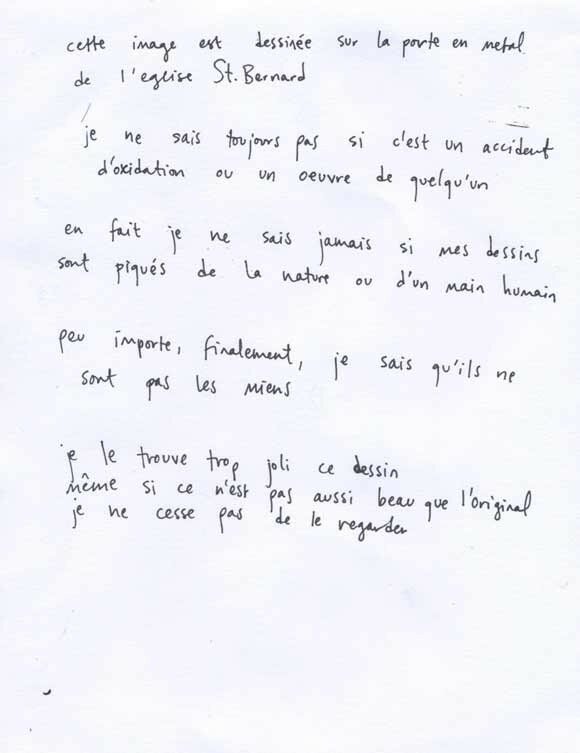 cette image est dessinée sur la porte en metal
de l'eglise St. Bernard
je ne sais toujours pas si c'est un accident
d'oxidation ou un oeuvre de quelqu'un
en fait je ne sais jamais si mes dessins
sont piqués de la nature ou d'un main humain
peu importe, finalement, je sais qu'ils ne
sont pas les miens
je le trouve trop joli ce dessin
même si ce n'est pas aussi beau que l'original
je ne cesse pas de le regarder